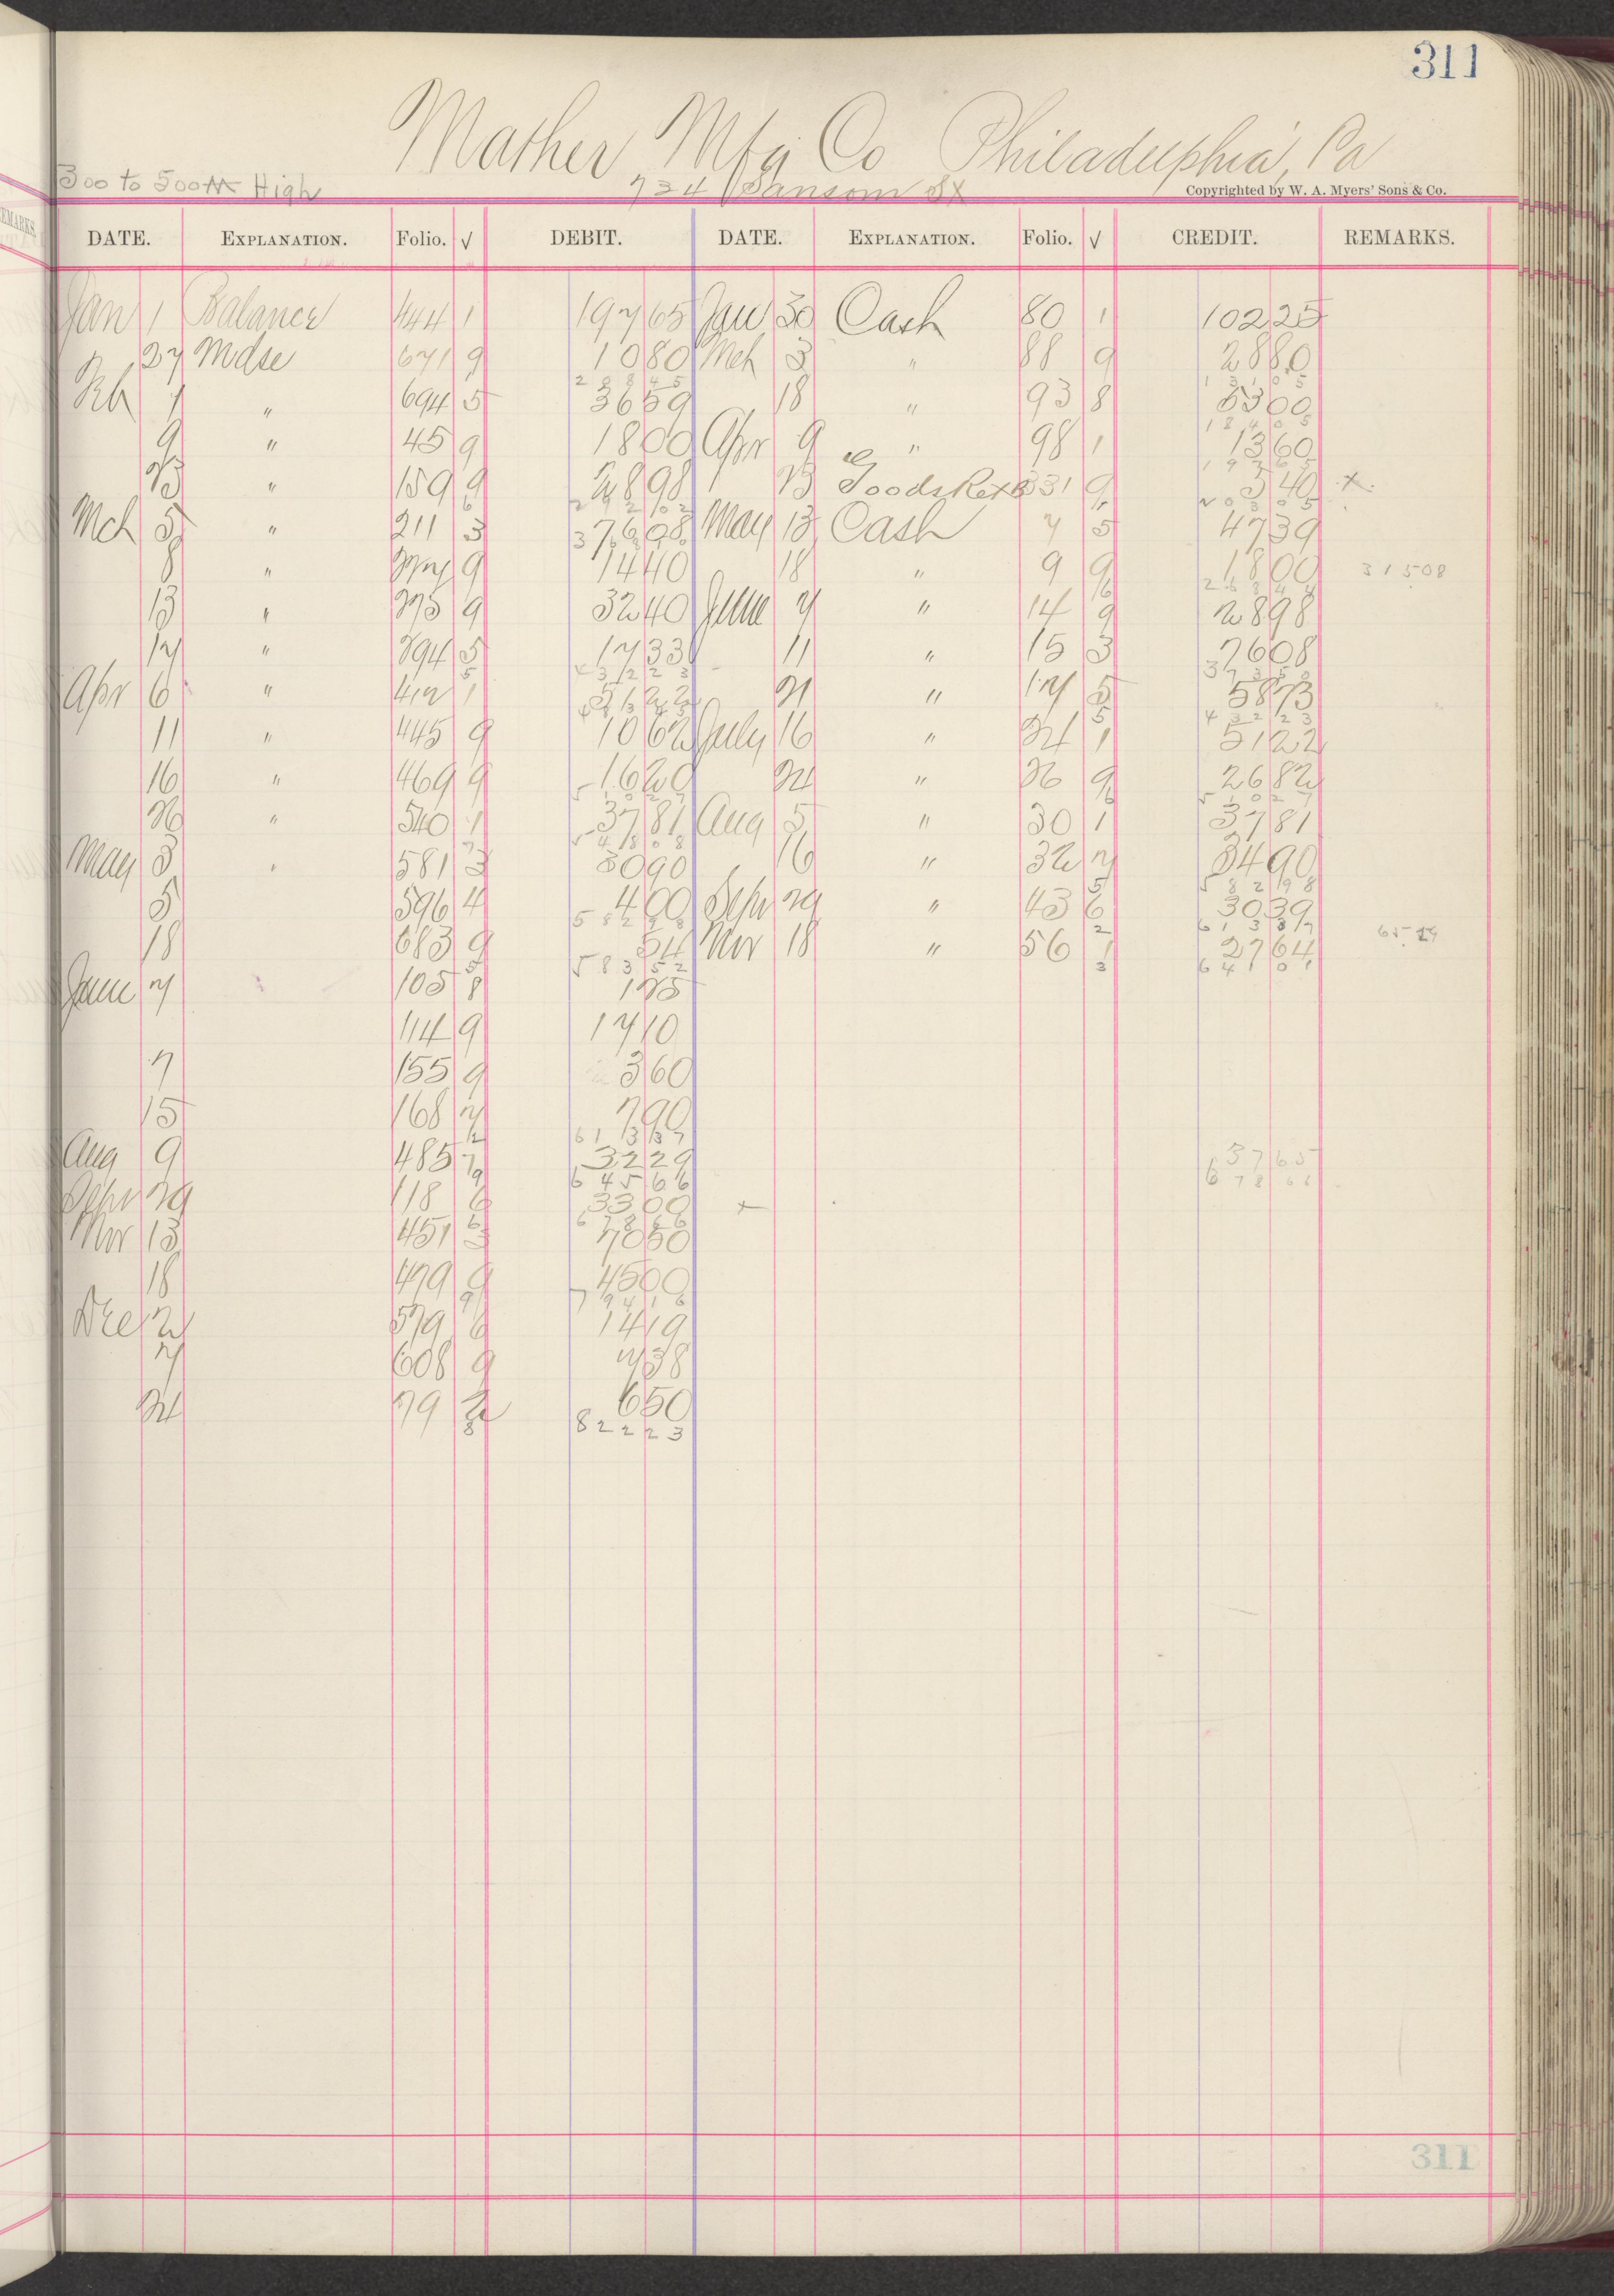 311
Mather Mfg Co Philadelphia, Pa
300 to 500 M High 734 Sansom St Copyrighted by W. A. Myers' Sons & Co.
DATE. EXPLANATION. Folio. √ DEBIT. DATE. EXPLANATION. Folio. √ CREDIT. REMARKS.
Jan 1 Balance 444 1 197 65 Jan 30 Cash 80 1 102 25
27 Mdse 671 9 10 80 Mch 3 " 88 9 28 80
288 45 131 05
Feb 7 " 694 5 36 59 18 " 93 8 53 00
184 05
9 " 45 9 18 00 Apr 9 " 98 1 13 60
197 65
13 " 159 9 28 98 13 Goods Retd 331 9 5 40 x
292 02 203 05
Mch 5 " 211 3 76 98 May 13 Cash 7 5 47 39
8 " 9 14 40 18 " 9 9 18 00 315 08
268 44
13 " 275 9 32 40 June 7 " 14 9 28 98
17 " 394 5 17 33 11 " 15 3 76 08
Apr 6 " 412 1 51 22 21 " 17 5 58 73
432 23
11 " 445 9 10 62 July 16 " 21 1 51 22
16 " 469 9 16 20 24 " 26 9 26 82
510 27
26 " 540 1 37 81 Aug 5 " 30 1 37 81
548 08
May 3 " 581 3 30 90 16 " 32 7 34 90
582 98
5 596 4 4 00 Sept 29 " 43 6 30 39
582 98 613 37
18 683 9 54 Nov 18 " 56 1 27 64
583 52 641 01
June 7 105 8 1 75
114 9 17 10
7 155 9 3 60
15 168 7 7 90
613 37
Aug 9 485 7 32 29 37 65
645 66 678 66
Sept 29 118 6 33 00 x
678 66
Nov 13 451 3 70 50
18 479 9 45 00
794 16
Dec 2 579 6 14 19
7 608 9 7 38
24 79 2 6 50
822 23
311